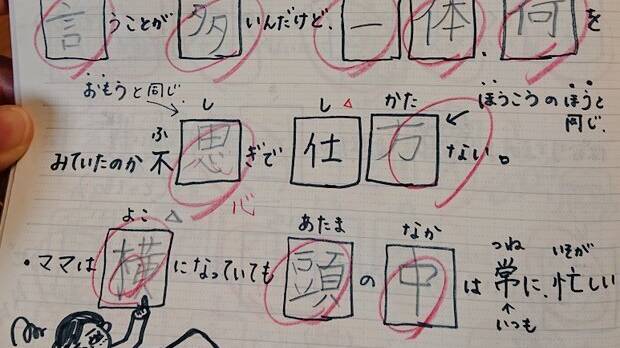 言うことが多いんだけど、一体、何を
おもうと同じ。 し し かた ほうこうのほうと同じ。
ふ
みていたのか不思ぎで仕方ない。
心
よこ あたま なか つね いそが
・ママは横になっていても頭の中は常に、忙しい
いつも